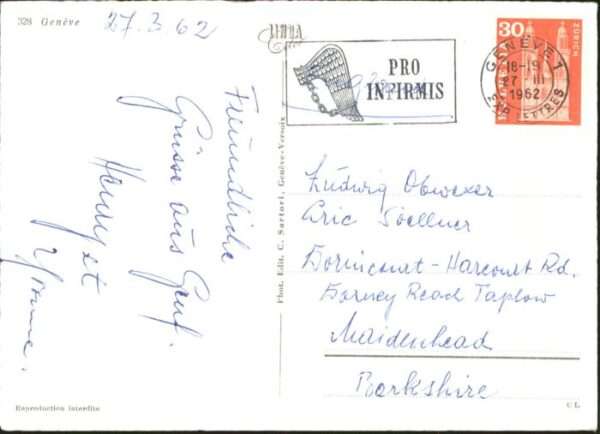 328 Genève
27.3 62
Freundliche
Grüsse aus Genf.
PRO
INFIRMIS
30
ZÜRICH
GENÈVE 1
18-19
27 III
1962
EXP LETTRES
Phot. Edit. C. Sartori, Genève-Versoix
Ludwig Obwexer
Eric Soellner
Dornicourt-Harcourt Rd.
Dorney Reach Taplow
Maidenhead
Berkshire
Reproduction interdite